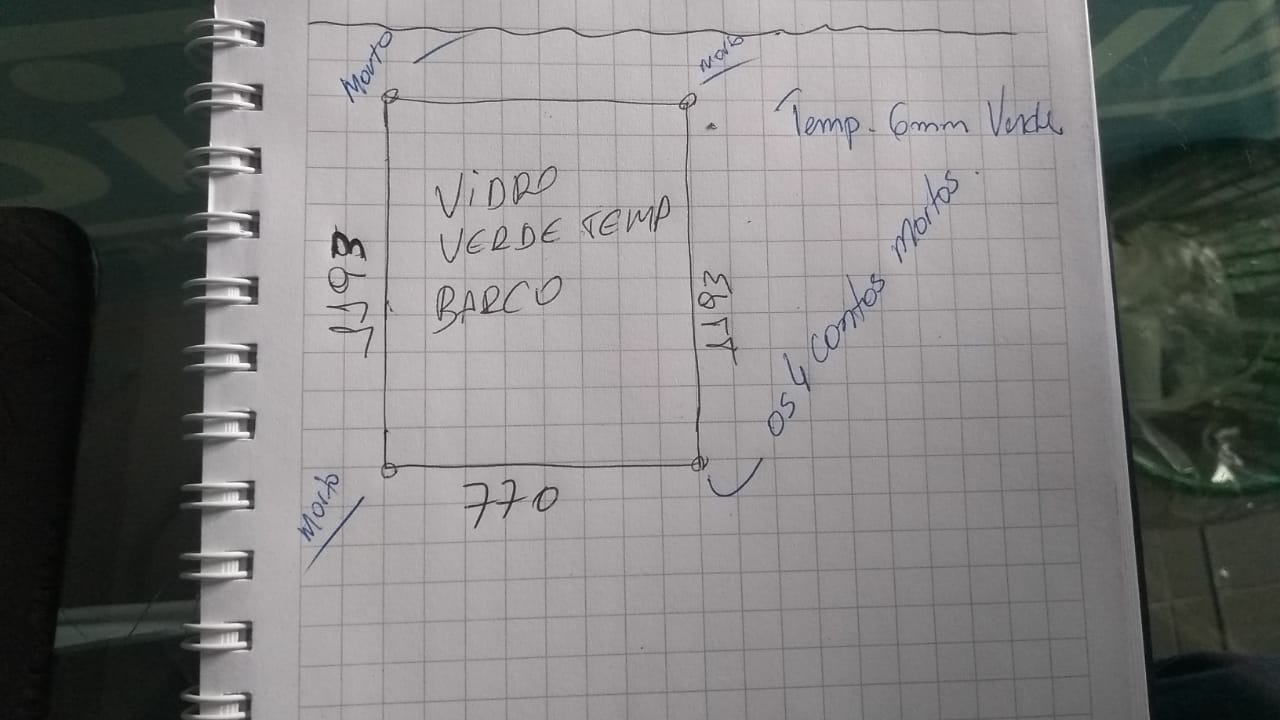 Morto
Morto
Temp. 6mm Verde
VIDRO
VERDE TEMP
BARCO
1193
1193
os 4 cantos mortos.
Morto
770